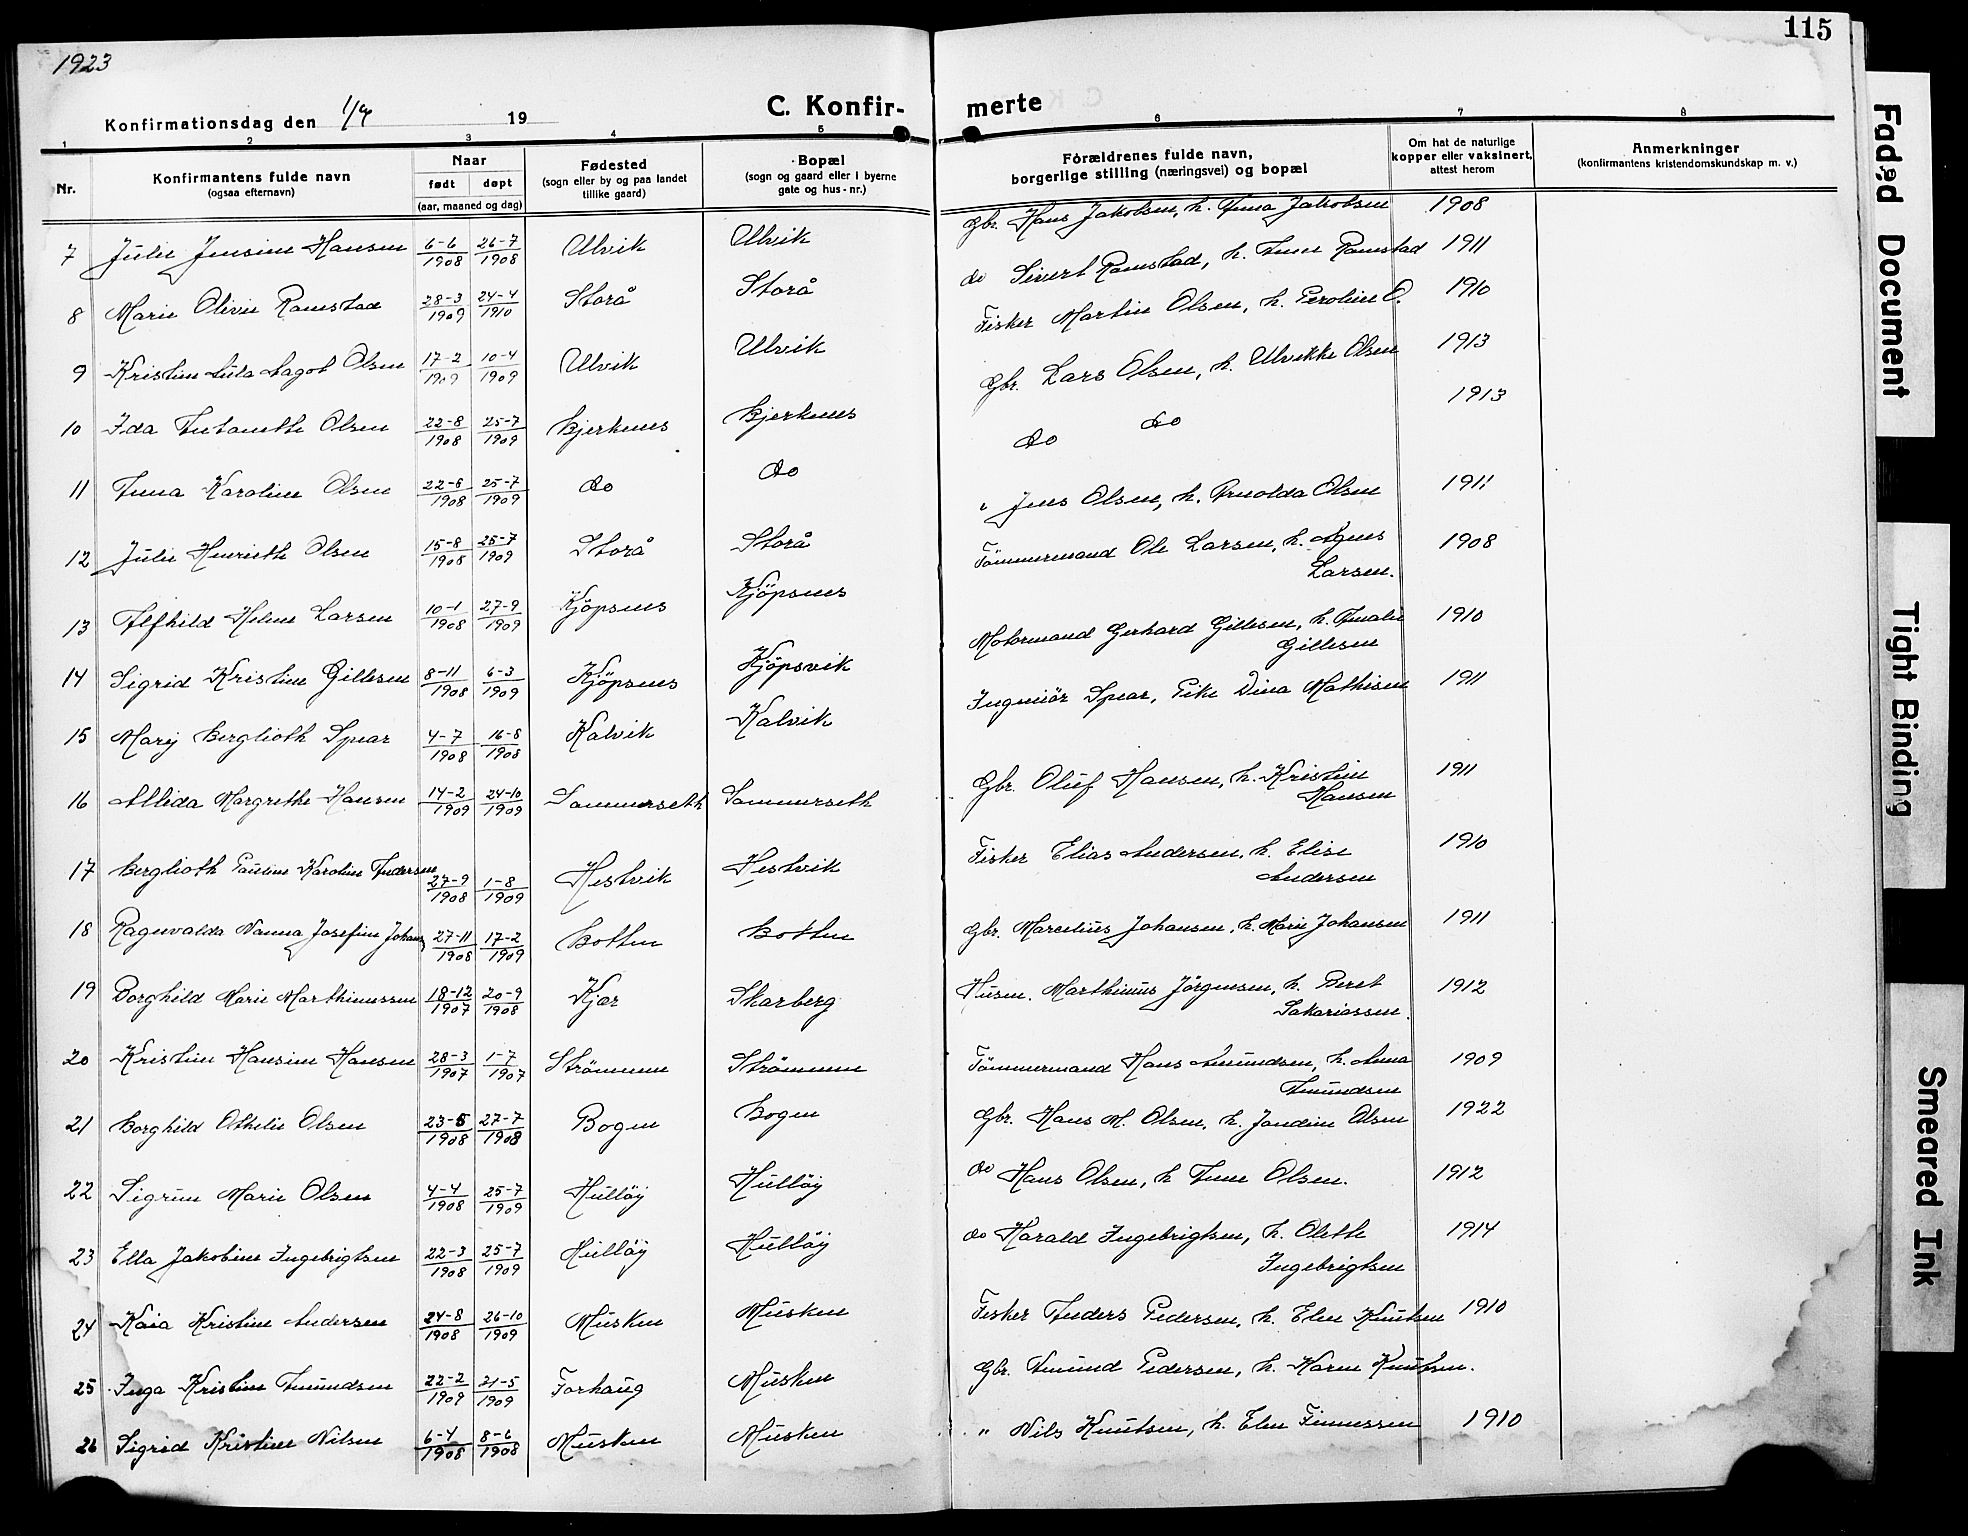 115
1923
Konfirmationsdag den 1/7 19
C. Konfir- merte
1 2 3 4 5 6 7 8
Nr.
Konfirmantens fulde navn
(ogsaa efternavn)
Naar
født døpt
(aar, maaned og dag)
Fødested
(sogn eller by og paa landet
tillike gaard)
Bopæl
(sogn og gaard eller i byerne
gate og hus-nr.)
Forældrenes fulde navn,
borgerlige stilling (næringsvei) og bopæl
Om hat de naturlige
kopper eller vaksinert,
attest herom
Anmerkninger
(konfirmantens kristendomskundskap m. v.)
7 Julie Jensine Hansen 6-6 1908 26-7 1908 Ulvik Ulvik Gbr. Hans Jakobsen, h. Anna Jakobsen 1908
8 Marie Olivie Ramstad 28-3 1909 24-4 1910 Storå Storå do Sivert Ramstad, h. Anne Ramstad 1911
9 Kristine Lula Dagot Olsen 17-2 1909 10-4 1909 Ulvik Ulvik Fisker Martin Olsen, h. Peroline O. 1910
10 Ida Antonette Olsen 22-8 1908 25-7 1909 Bjerknes Bjerknes Gbr. Lars Olsen, h. Ulvikke Olsen 1913
11 Anna Karoline Olsen 22-8 1908 25-7 1909 do do do do 1913
12 Julie Henriette Olsen 15-8 1908 25-7 1909 Storå Storå " Jens Olsen, h. Arnolda Olsen 1911
13 Alfhild Helene Larsen 10-1 1908 27-9 1909 Kjöpsnes Kjöpsnes Tömmermand Ole Larsen, h. Agnes
Larsen. 1908
14 Sigrid Kristine Gillesen 8-11 1908 6-3 1909 Kjöpsnes Kjöpsvik Motormand Gerhard Gillesen, h. Amalie
Gillesen 1910
15 Mary Berglioth Spear 4-7 1908 16-8 1908 Kalvik Kalvik Ingeniör Spear, Pike Dina Mathisen 1911
16 Allida Margrethe Hansen 14-2 1909 24-10 1909 Sommerseth Sommerseth Gbr. Oluf Hansen, h. Kristine
Hansen 1911
17 Berglioth Pauline Karoline Andersen 27-9 1908 1-8 1909 Hestvik Hestvik Fisker Elias Andersen, h. Elise
Andersen 1910
18 Ragnvalda Nanna Josefine Johans 27-11 1908 17-2 1909 Botten Botten Gbr. Marcelius Johansen, h. Marie Johansen 1911
19 Borghild Marie Marthinussen 18-12 1907 20-9 1908 Kjær Skarberg Husm. Marthinus Jörgensen, h. Beret
Sakariassen. 1912
20 Kristine Hansine Hansen 28-3 1907 1-7 1907 Strömmen Strömmen Tömmermand Hans Amundsen, h. Anna
Amundsen 1909
21 Borghild Othelie Olsen 23-5 1908 27-7 1908 Bogen Bogen Gbr. Hans M. Olsen, h. Jondine Olsen 1922
22 Sigrun Marie Olsen 4-4 1908 25-7 1909 Hulløy Hulløy do Hans Olsen, h Anne Olsen. 1912
23 Ella Jakobine Ingebrigtsen 22-3 1908 25-7 1909 Hulløy Hulløy do Harald Ingebrigtsen, h. Olette
Ingebrigtsen 1914
24 Kaia Kristine Andersen 24-8 1908 26-10 1909 Musken Musken Fisker Anders Pedersen, h. Elen Knutsen 1910
25 Inga Kristine Amundsen 22-2 1909 21-5 1909 Forhaug Musken Gbr. Amund Pedersen, h. Karen Knutsen.
26 Sigrid Kristine Nilsen 6-4 1908 8-6 1908 Musken Musken " Nils Knutsen, h. Elen Finnessen 1910
Faded Document
Tight Binding
Smeared Ink